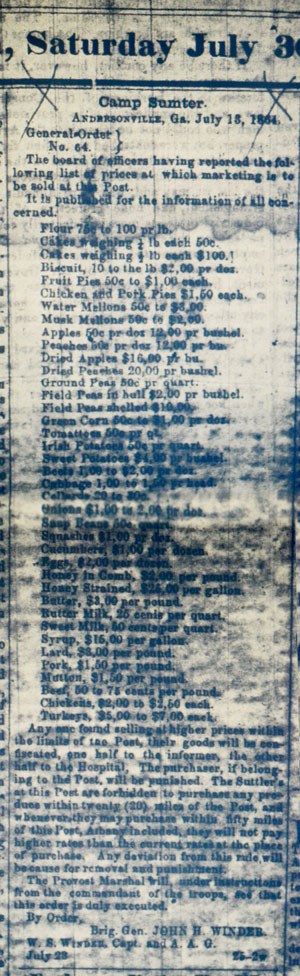 , Saturday July 30
Camp Sumter.
ANDERSONVILLE, Ga. July 18, 1864.
General Order }
No. 64. }
The board of officers having reported the fol-
lowing list of prices at which marketing is to
be sold at this Post.
It is published for the information of all con-
cerned.
Flour 75c to 100 pr lb.
Cakes weighing ¼ lb each 50c.
Cakes weighing ½ lb each $100.
Biscuit, 10 to the lb $2,00 pr doz.
Fruit Pies 50c to $1,00 each.
Chicken and Pork Pies $1,50 each.
Water Mellons 50c to $3,00.
Musk Mellons 50c to $2,00.
Apples 50c pr doz 12,00 pr bushel.
Peaches 50c pr doz 12,00 pr bu.
Dried Apples $16,00 pr bu.
Dried Peaches 20,00 pr bushel.
Ground Peas 50c pr quart.
Field Peas in hull $2,00 pr bushel.
Field Peas shelled $10,00.
Green Corn 50c to $1,00 pr doz.
Tomattoes 50c pr qt.
Irish Potatoes 50c pr quart.
Sweet Potatoes pr bushel.
Beets 1,00 to $2,00 pr doz.
Cabbage 1,00 to pr head.
Collards 20 to 50c.
Onions $1,00 to 2,00 pr doz.
Snap Beans 50c quart.
Squashes $1,00 pr doz.
Cucumbers, $1,00 per dozen.
Eggs, $2,00 per dozen.
Honey in Comb, $2,00 per pound.
Honey Strained, per gallon.
Butter, $3,00 per pound.
Butter Milk, 25 cents per quart.
Sweet Milk, 50 cents per quart.
Syrup, $15,00 per gallon.
Lard, $3,00 per pound.
Pork, $1,50 per pound.
Mutton, $1,50 per pound.
Beef, 50 to 75 cents per pound.
Chickens, $2,00 to $2,50 each.
Turkeys, $5,00 to $7,00 each.
Any one found selling at higher prices within
the limits of the Post, their goods will be con-
fiscated, one half to the informer, the other
half to the Hospital. The purchaser, if belong-
ing to the Post, will be punished. The Suttler's
at this Post are forbidden to purchase any pro
duce within twenty (20) miles of the Post, and
whenever they may purchase within fifty miles
of this Post, Albany included, they will not pay
higher rates than the current rates at the place
of purchase. Any deviation from this rule will
be cause for removal and punishment.
The Provost Marshal will, under instructions
from the commandant of the troops, see that
this order is duly executed.
By Order,
Brig. Gen. JOHN H. WINDER.
W. S. WINDER, Capt. and A. A. G.
July 23 25-2w